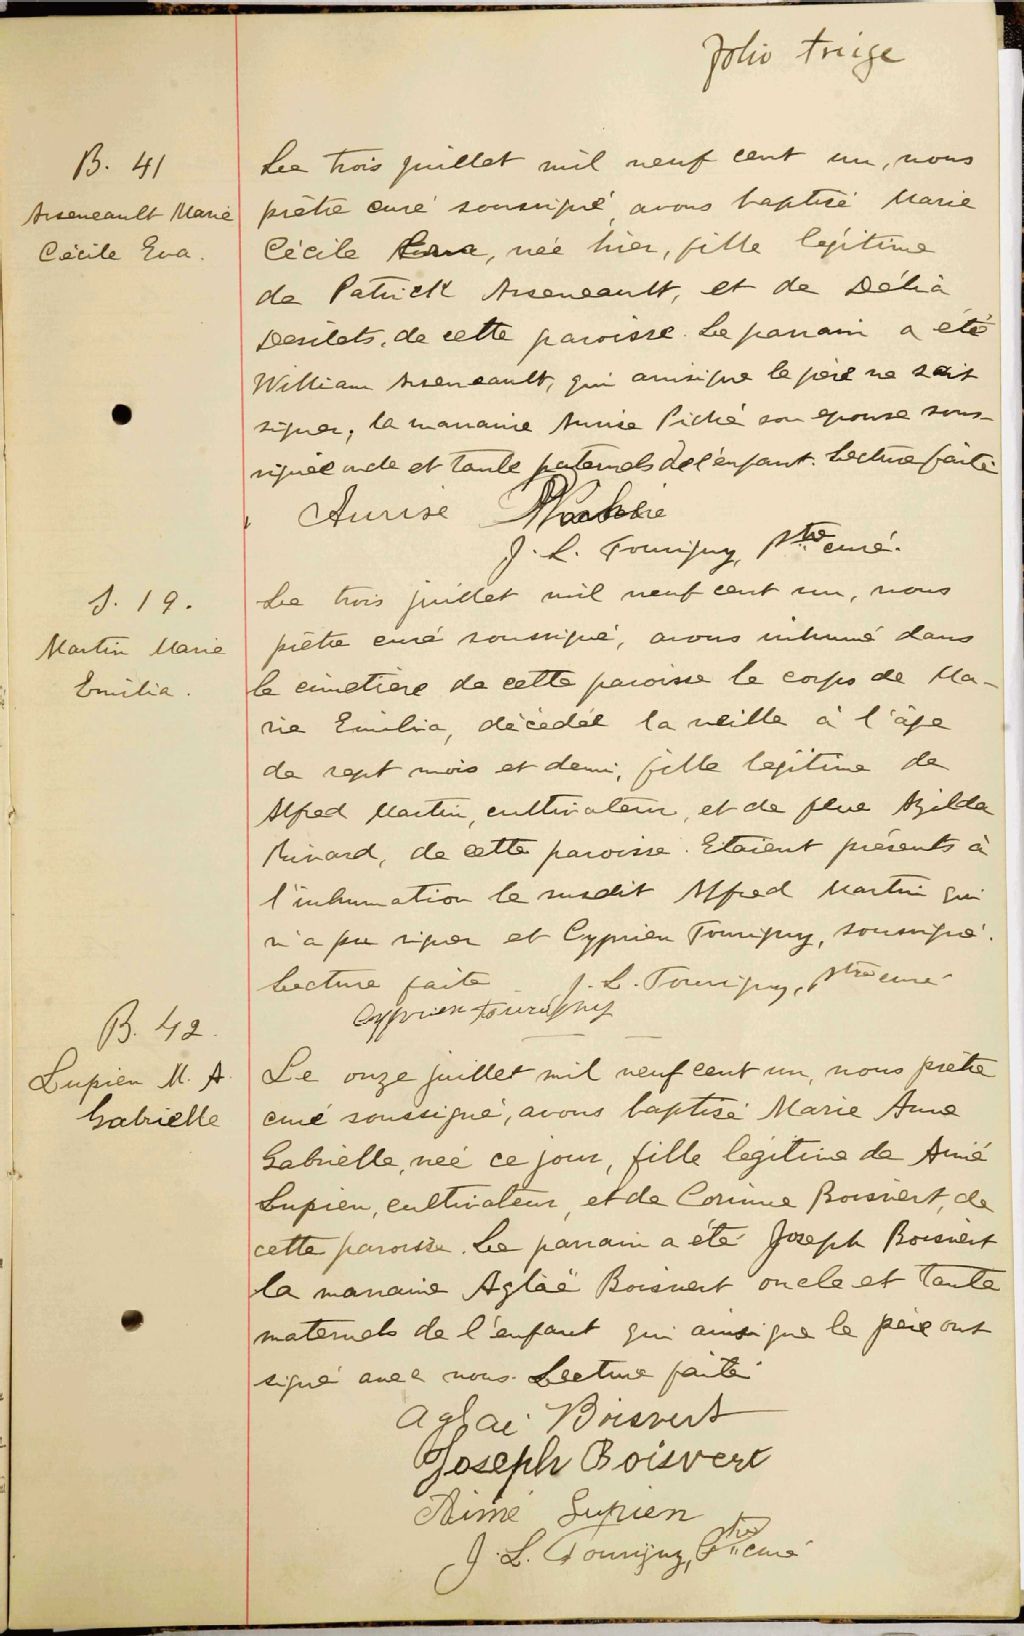 folio treize
B. 41
Arseneault Marie
Cécile Eva.
Le trois juillet mil neuf cent un, nous
prêtre curé soussigné, avons baptisé Marie
Cécile Eva, née hier, fille légitime
de Patrick Arseneault, et de Délia
Desilets, de cette paroisse. Le parrain a été
William Arseneault, qui ainsi que le père ne sait
signer, la marraine Aurise Piché son epouse sous-
signée oncle et tante paternels de l'enfant. Lecture faite
Aurise
J. L. Tourigny, Ptre curé.
S. 19.
Martin Marie
Emilia.
Le trois juillet mil neuf cent un, nous
prêtre curé soussigné, avons inhumé dans
le cimetière de cette paroisse le corps de Ma-
rie Emilia, décédée la veille à l'âge
de sept mois et demi, fille légitime de
Alfred Martin, cultivateur, et de feue Azilda
Rivard, de cette paroisse. Etaient présents à
l'inhumation le susdit Alfred Martin qui
n'a pu signer et Cyprien Tourigny, soussigné.
Lecture faite J. L. Tourigny, Ptre curé
Cyprien Tourigny
B. 42.
Lupien M. A.
Gabrielle
Le onze juillet mil neuf cent un, nous prêtre
curé soussigné, avons baptisé Marie Anne
Gabrielle, née ce jour, fille légitime de Aimé
Lupien, cultivateur, et de Corinne Boisvert, de
cette paroisse. Le parrain a été Joseph Boisvert
la marraine Aglaë Boisvert oncle et tante
maternels de l'enfant qui ainsi que le père ont
signé avec nous. Lecture faite
Aglaé Boisvert
Joseph Boisvert
Aimé Lupien
J. L. Tourigny, Ptre curé